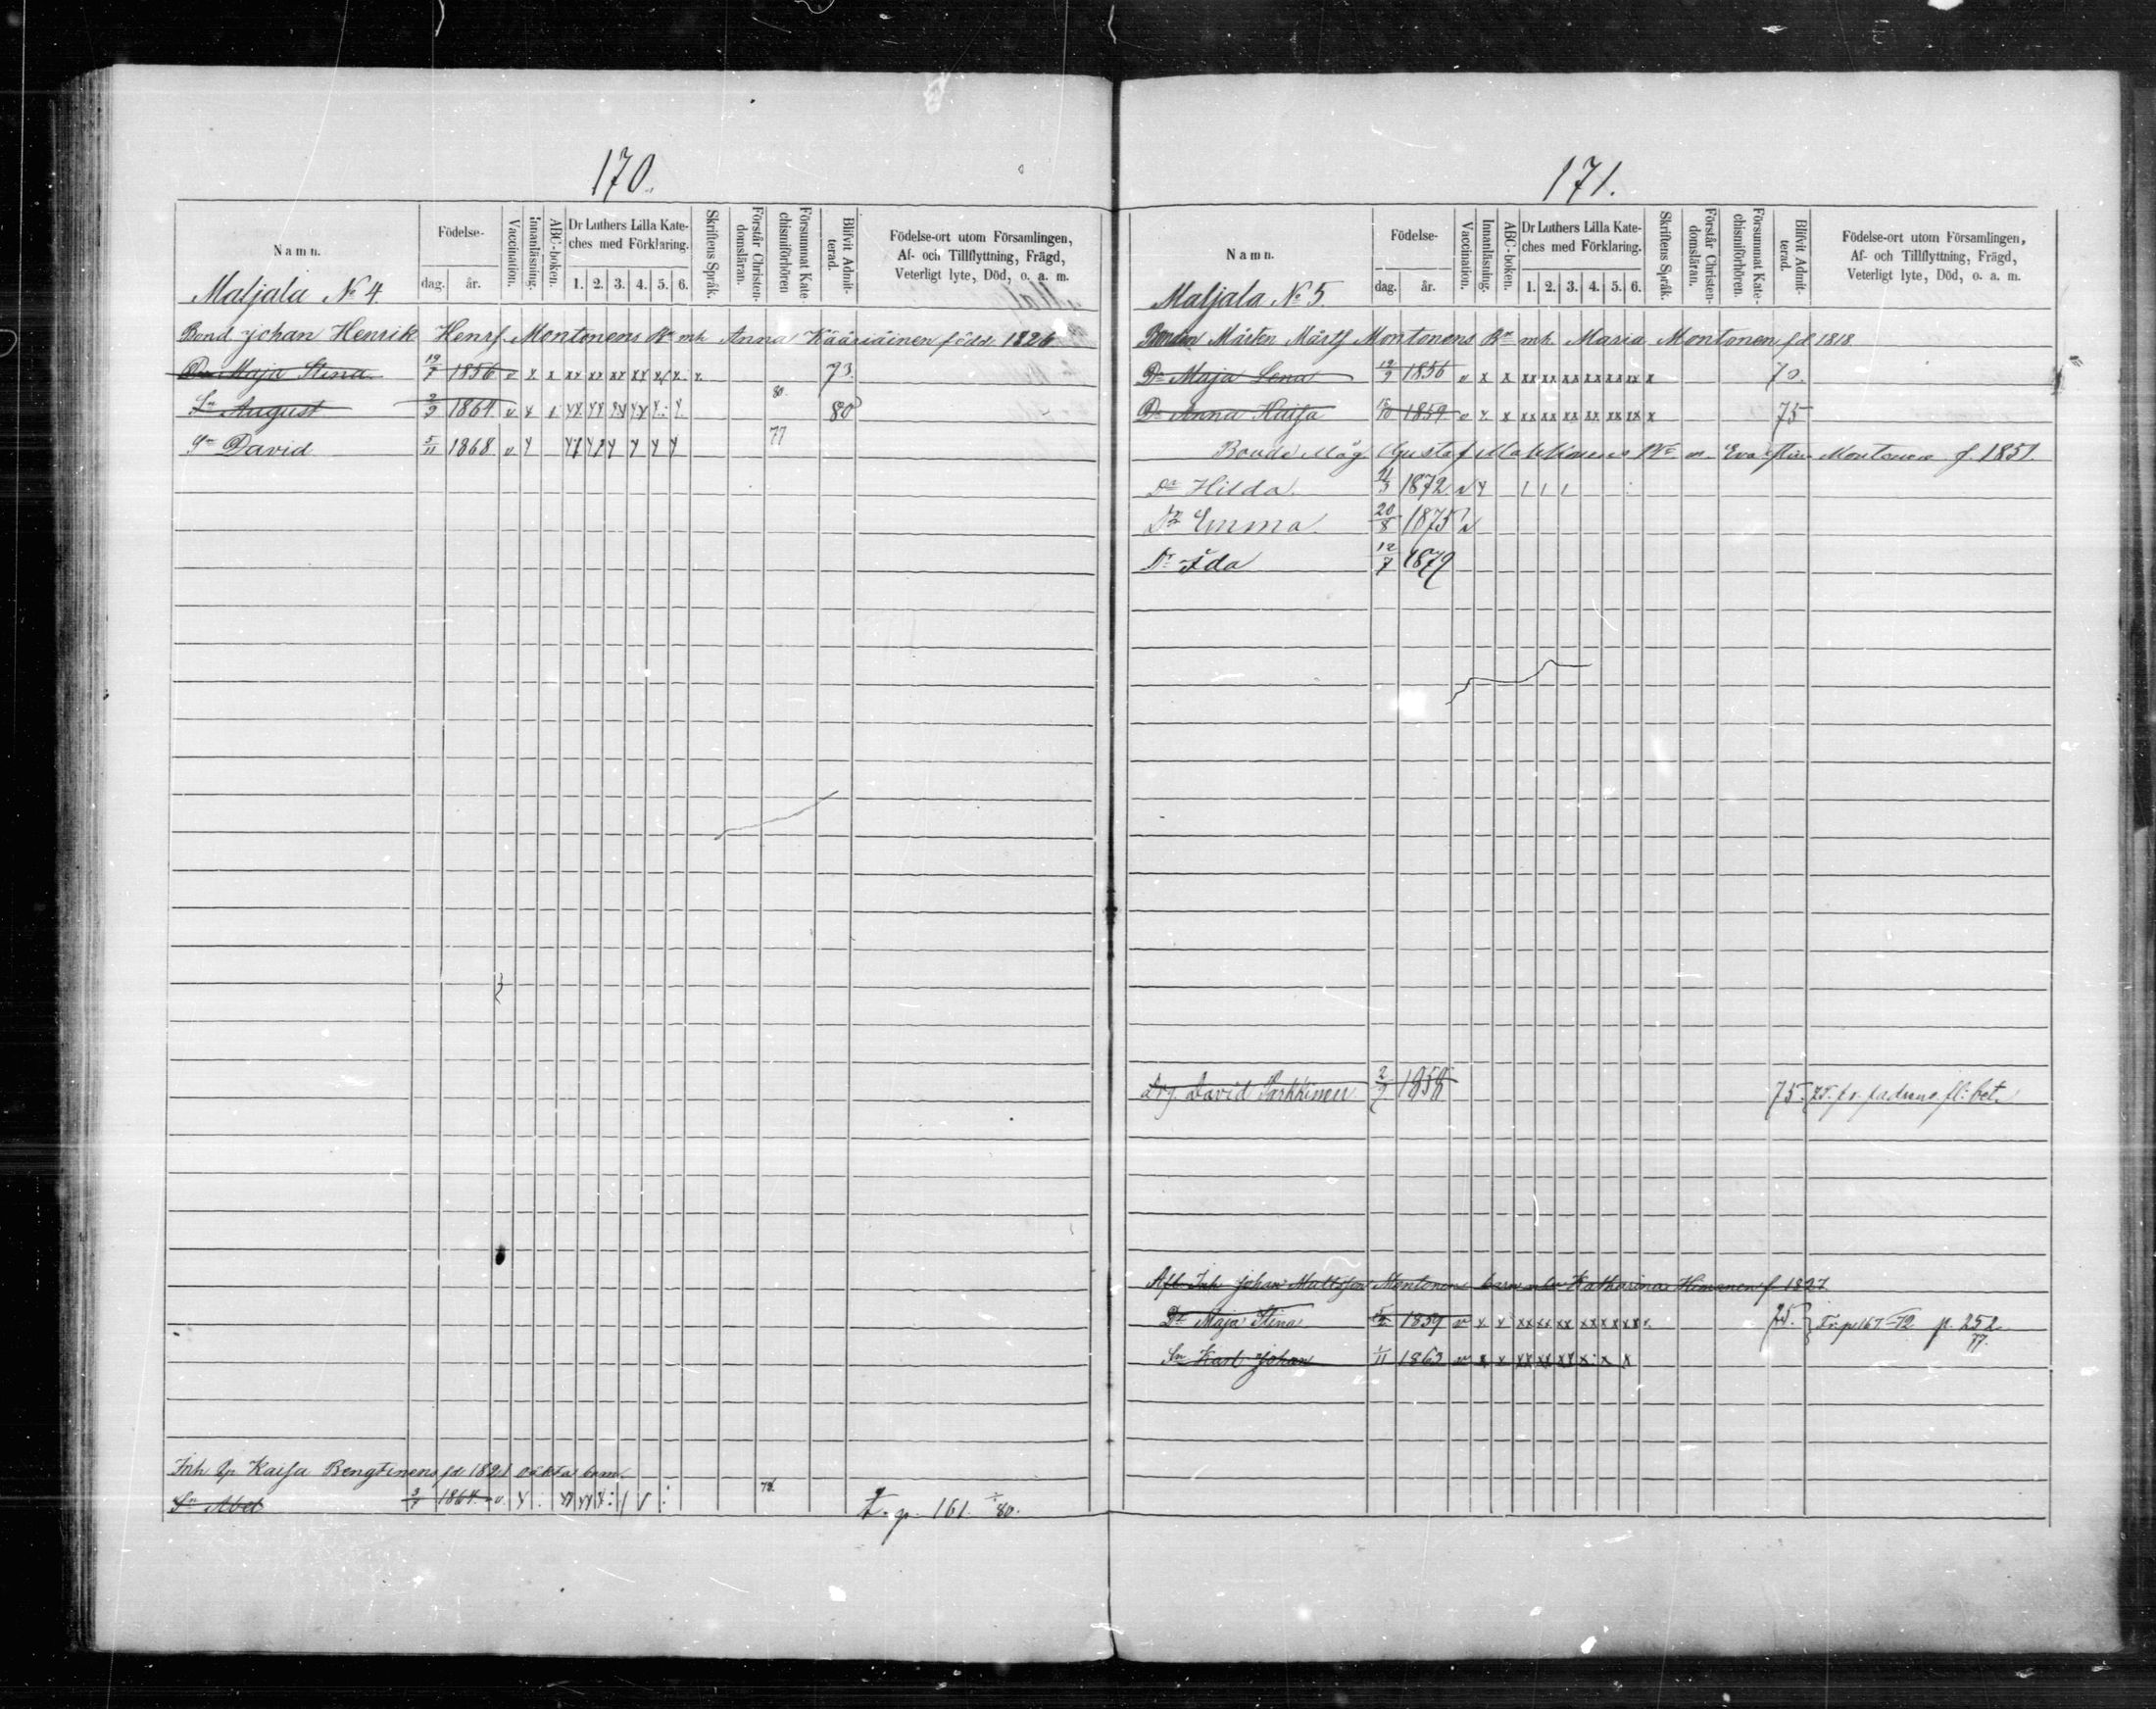 170.
Namn.
Födelse-
dag. år.
Vaccination.
Innanläsning.
ABC-boken.
Dr Luthers Lilla Kate-
ches med Förklaring.
1. 2. 3. 4. 5. 6.
Skriftens Språk.
Förstår Christen-
domsläran.
Försummat Kate-
chismiförhören
Blifvit Admit-
terad.
Födelse-ort utom Församlingen,
Af- och Tillflyttning, Frägd,
Veterligt lyte, Död, o. a. m.
Maljala No 4
Bond Johan Henrik Henrs. Montonens Bn mh Anna Kääriäinen född 1826
Dr Maja Stina 19/7 1856 v x x xx xx xx xx x/x x. x 73.
Sn August 2/9 1864 v x x xx xx xx xx x: x 80. 80
Sn David 5/11 1868 v x 77
Inh Qp Kaisa Bengtinens fd 1821 oäkta barn
Sn Abel 1864 v. x 78. T. p. 161. 80.
171.
Namn.
Födelse-
dag. år.
Vaccination.
Innanläsning.
ABC-boken.
Dr Luthers Lilla Kate-
ches med Förklaring.
1. 2. 3. 4. 5. 6.
Skriftens Språk.
Förstår Christen-
domsläran.
Försummat Kate-
chismiförhören.
Blifvit Admit-
terad.
Födelse-ort utom Församlingen,
Af- och Tillflyttning, Frägd,
Veterligt lyte, Död, o. a. m.
Maljala No 5.
Bonden Mårten Mårts Montonens Bn mh Maria Montonen fd 1818
Dr Maja Lena 12/9 1856 v x x xx xx xx xx xx xx x
Dr Anna Kaisa 1859 v x x xx xx xx xx xx xx x 75
Bonde Måg Gustaf Montonen f. 1851.
Dr Hilda. 1872 v x 1 1 1
Dr Emma. 20/8 1875 v
Dr Ida 12/7 1879
Drg. David Parkkinen 2/9 1858 75.
Afl. Inh Johan Mattsson Montonens barn Katharina Himanen f. 1827
Dr Maja Stina 1859 v x x xx xx xx x x x x x x. 75. p. 252
77.
Sn Karl Johan 1/11 1863 v x x xx xx xx x: x x